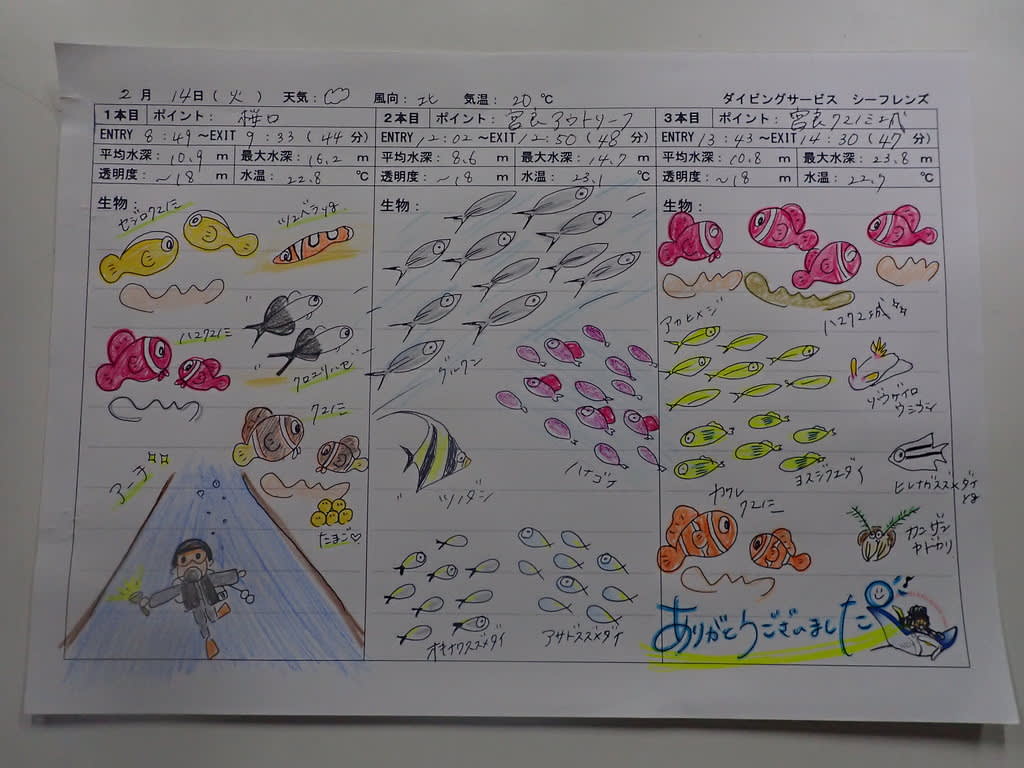 2月 14日(火) 天気: 風向:北 気温: 20℃ ダイビングサービス シーフレンズ
1本目 ポイント: 桜口
ENTRY 8:49〜EXIT 9:33(44分)
平均水深: 10.9 m 最大水深: 16.2 m
透明度: 〜18 m 水温: 22.8 ℃
生物:
セジロクマノミ
ツユベラyg
ハマクマノミ
クロユリハゼ
クマノミ
たまご♡
アーチ
2本目 ポイント: 宮良アウトリーフ
ENTRY 12:02〜EXIT 12:50(48分)
平均水深: 8.6 m 最大水深: 14.7 m
透明度: 〜18 m 水温: 23.1 ℃
生物:
グルクン
ツノダシ
ハナゴイ
オキナワスズメダイ
アサドスズメダイ
3本目 ポイント: 宮良クマノミ城
ENTRY 13:43〜EXIT 14:30(47分)
平均水深: 10.8 m 最大水深: 23.8 m
透明度: 〜18 m 水温: 22.9 ℃
生物:
ハマクマノミ城
アカヒメジ
ゾウゲイロ
ウミウシ
ヨスジフエダイ
ヒレナガスズメダイ
yg
カクレ
クマノミ
カンザシ
ヤドカリ
ありがとうございました